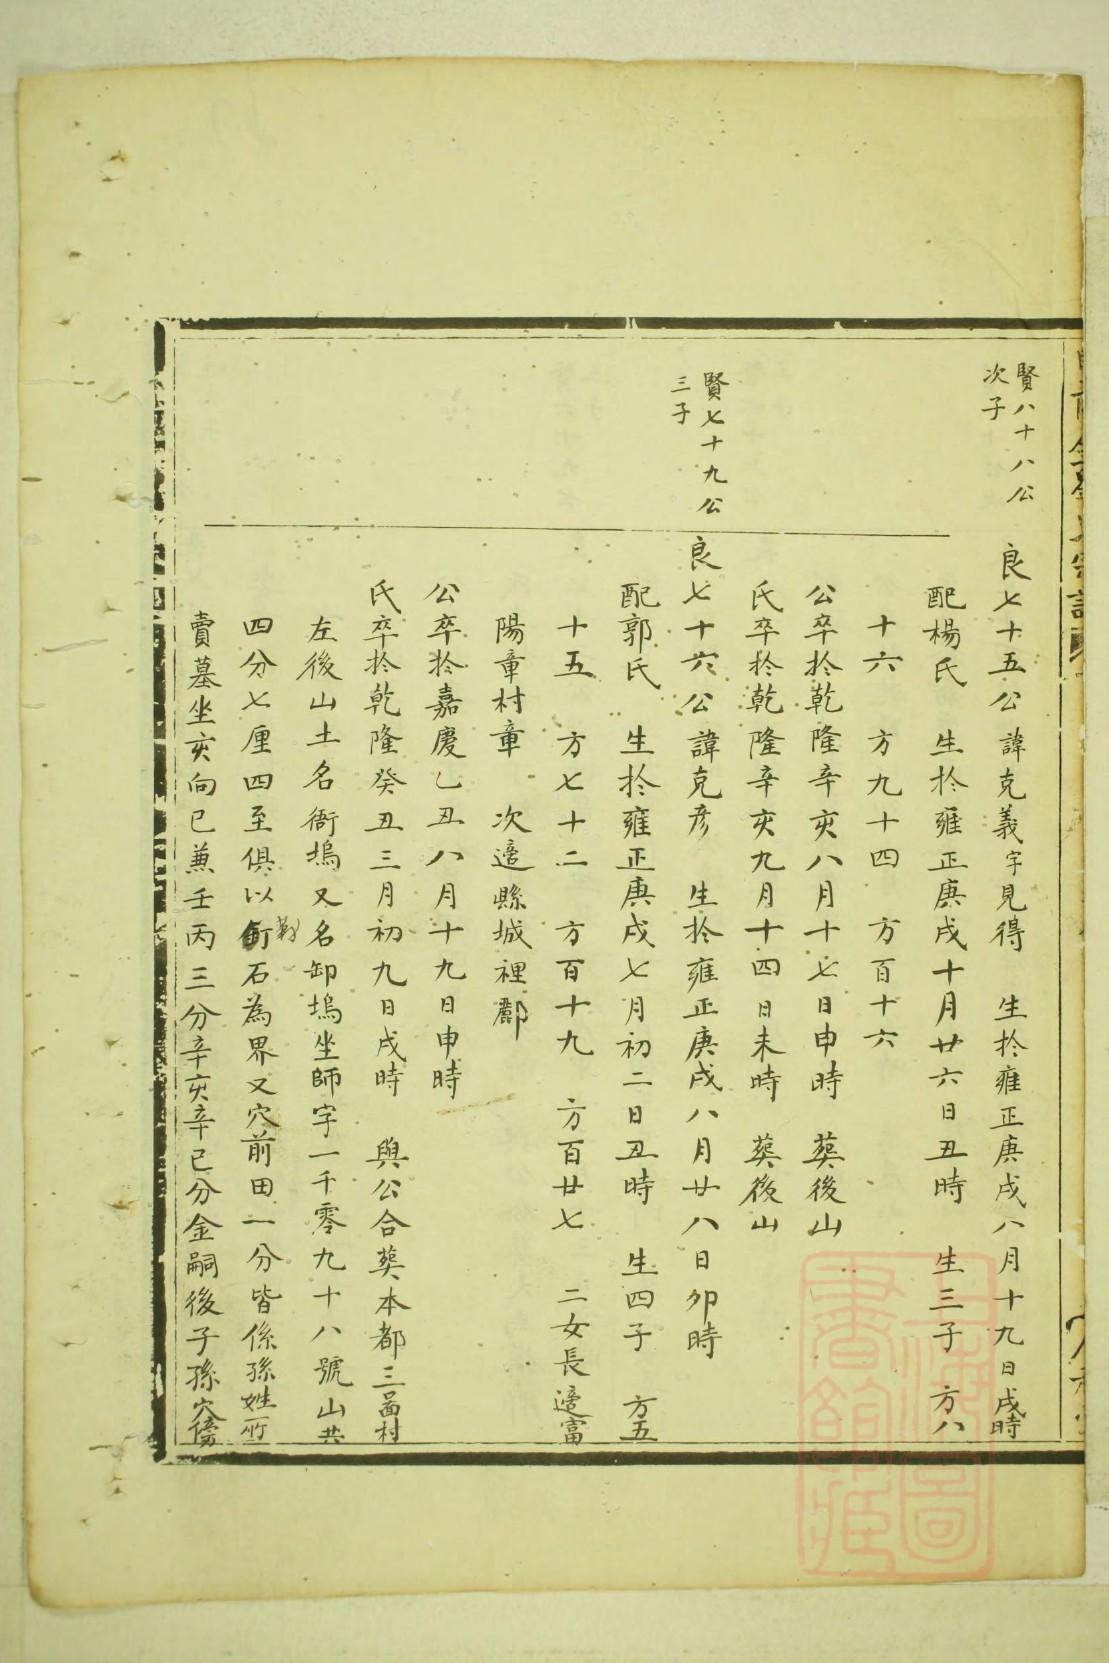 賢八十八公
次子
良七十五公諱克義字見得 生於雍正庚戌八月十九日戌時
配楊氏 生於雍正庚戌十月廿六日丑時 生三子 方八
十六 方九十四 方百十六
公卒於乾隆辛亥八月十七日申時 葬後山
氏卒於乾隆辛亥九月十四日未時 葬後山
賢七十九公
三子
良七十六公諱克彦 生於雍正庚戌八月廿八日卯時
配郭氏 生於雍正庚戌七月初二日丑時 生四子 方五
十五 方七十二 方百十九 方百廿七 二女長適富
陽章村章 次適縣城裡酈
公卒於嘉慶乙丑八月十九日申時
氏卒於乾隆癸丑三月初九日戌時 與公合葬本都三啚村
左後山土名衙塢又名卸塢坐師字一千零九十八號山共
四分七厘四至俱以石為界又穴前田一分皆係孫姓所
賣墓坐亥向巳兼壬丙三分辛亥辛巳分金嗣後子孫穴傍
上海圖書館藏